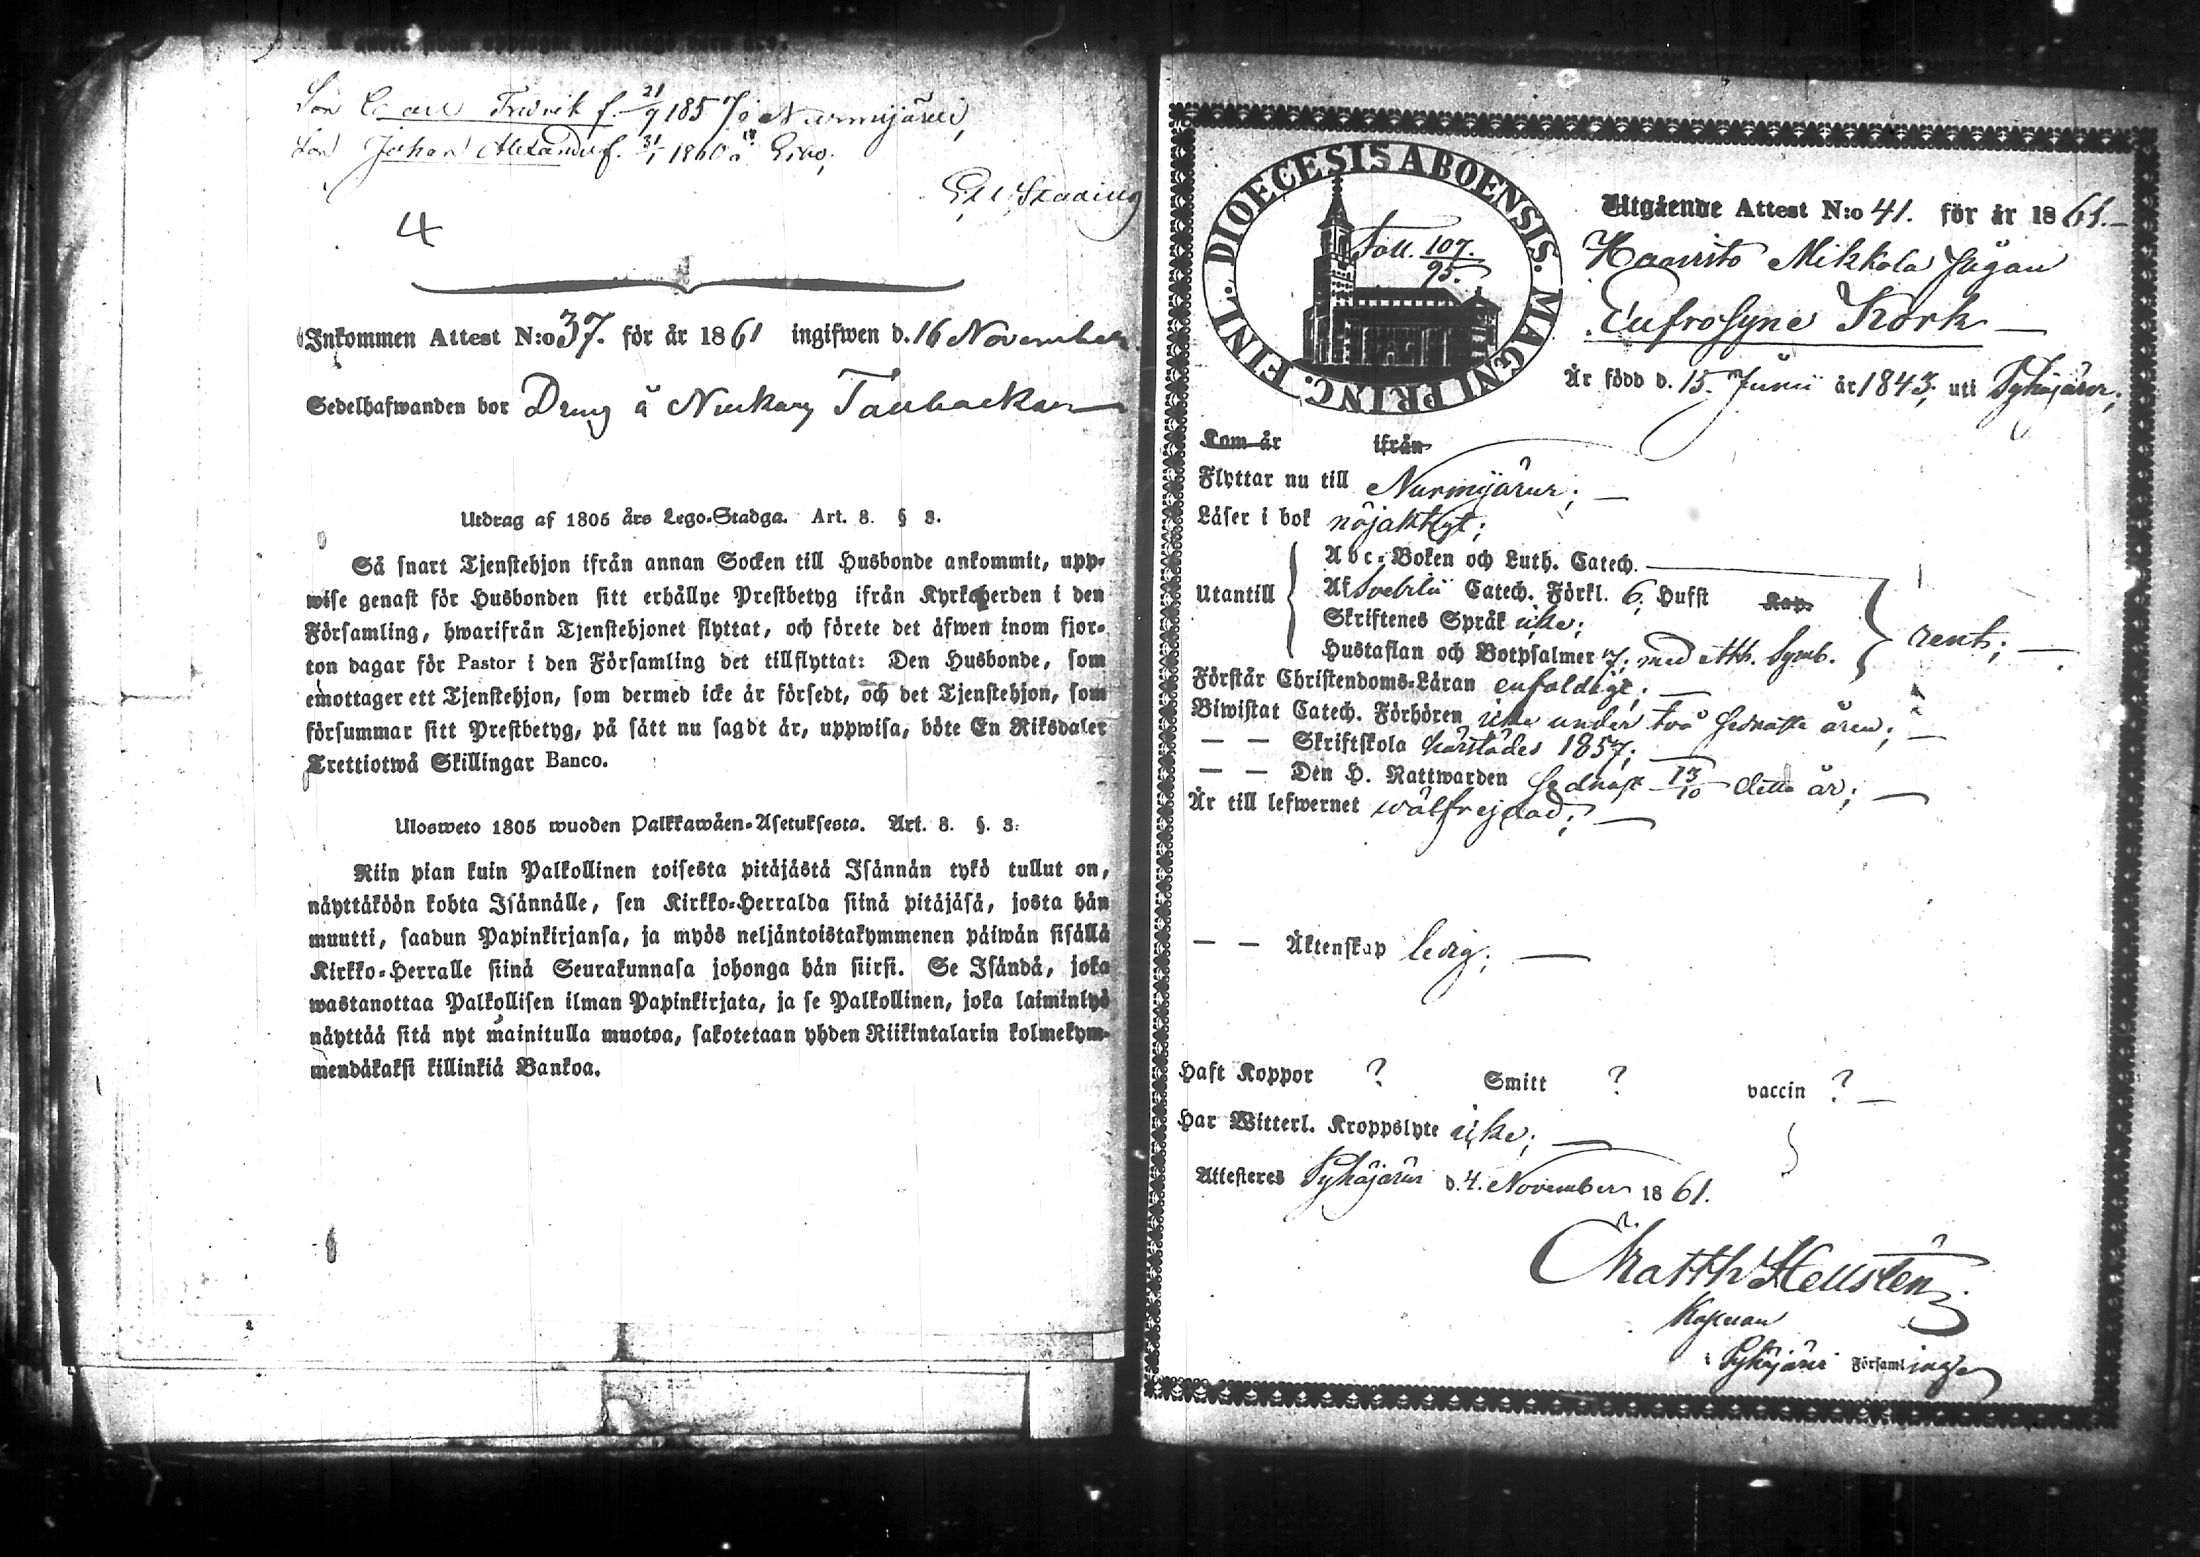 Son Carl Fredrik f. 21/9 1857 i Nurmijärvi,
Son Johan Alexander f. 31/1 1860 i
4
Inkommen Attest N:o 37. för år 1861 ingifwen d. 16 November
Sedelhafwanden bor Dräng å Nurkary
Utdrag af 1805 års Lego-Stadga. Art. 8. § 3.
Så snart Tjenstehjon ifrån annan Socken till Husbonde ankommit, upp-
wise genast för Husbonden sitt erhållne Prestbetyg ifrån Kyrkoherden i den
Församling, hwarifrån Tjenstehjonet flyttat, och förete det äfwen inom fjor-
ton dagar för Pastor i den Församling det tillflyttat: Den Husbonde, som
emottager ett Tjenstehjon, som dermed icke är försedt, och det Tjenstehjon, som
försummar sitt Prestbetyg, på sätt nu sagdt är, uppwisa, böte En Riksdaler
Trettiotwå Skillingar Banco.
Ulosweto 1805 wuoden Palkkawäen-Asetuksesta. Art. 8. §. 3:
Niin pian kuin Palkollinen toisesta pitäjästä Isännän tykö tullut on,
näyttäköön kohta Isännälle, sen Kirkko-Herralda siinä pitäjäsä, josta hän
muutti, saadun Papinkirjansa, ja myös neljäntoistakymmenen päiwän sisällä
Kirkko-Herralle siinä Seurakunnasa johonga hän siirsi. Se Isändä, joka
wastanottaa Palkollisen ilman Papinkirjata, ja se Palkollinen, joka laiminlyö
näyttää sitä nyt mainitulla muotoa, sakotetaan yhden Riikintalarin kolmekym-
mendäkaksi killinkiä Bankoa.
DIOECESIS ABOENSIS. MAGNI PRINC. FINL.
Foll. 107.
95.
Utgående Attest N:o 41. för år 1861.
Haavisto Mikkola Pigan
Eufrosyne Kork
Är född d. 15. Junii år 1843, uti Pyhäjärvi;
Kom år ifrån
Flyttar nu till Nurmijärvi;
Läser i bok nöjaktigt;
Utantill
Abc-Boken och Luth. Catech.
Af Svebilii Catech. Förkl. 6, Hufst Kap.
Skriftenes Språk icke;
Hustaflan och Botpsalmer 7; med Ath. Symb.
rent;
Förstår Christendoms-Läran enfaldigt;
Biwistat Catech. Förhören icke under två sednaste åren;
— — Skriftskola härstädes 1857;
— — Den H. Nattwarden sednast 13/10 detta år;
Är till lefwernet wälfrejdad;
— — Äktenskap ledig;
Haft Koppor ? Smitt ? vaccin ?
Har Witterl. Kroppslyte icke;
Attesteres Pyhäjärvi d. 4. November 1861.
Matth Hellstén
Kapellan
i Pyhäjärvi Församlinge